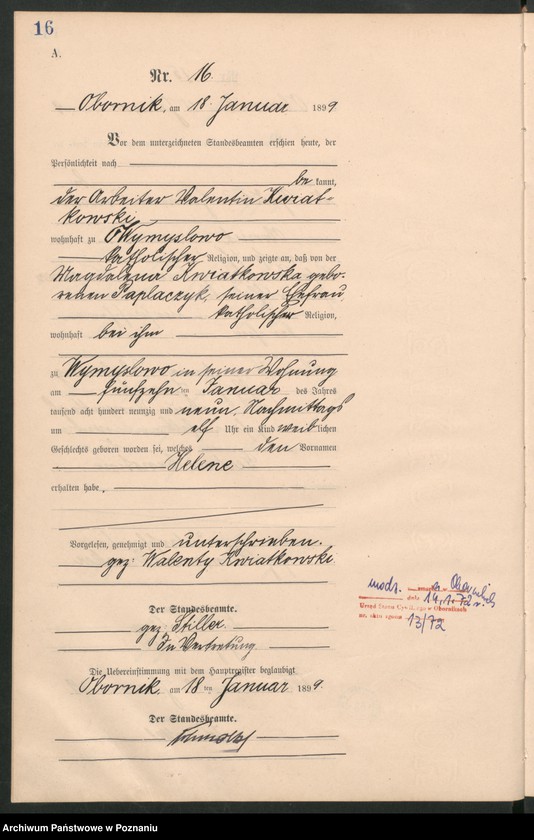 16
A.
Nr. 16.
Obornik, am 18. Januar 1899
Vor dem unterzeichneten Standesbeamten erschien heute, der
Persönlichkeit nach
be kannt,
der Arbeiter Valentin Kwiat-
kowski,
wohnhaft zu Wymyslowo
katholischer Religion, und zeigte an, daß von der
Magdalena Kwiatkowska gebo-
renen Taplaczyk, seiner Ehefrau,
katholischer Religion,
wohnhaft bei ihm
zu Wymyslowo in seiner Wohnung
am fünfzehn ten Januar des Jahres
tausend acht hundert neunzig und neun, Nachmittags
um elf Uhr ein Kind weib lichen
Geschlechts geboren worden sei, welches den Vornamen
Helene
erhalten habe.
Vorgelesen, genehmigt und unterschrieben.
gez. Walenty Kwiatkowski
Der Standesbeamte.
gez. Stiller.
In Vertretung
Die Uebereinstimmung mit dem Hauptregister beglaubigt
Obornik, am 18 ten Januar 1899.
Der Standesbeamte.
w Obornikach
dnia 14.1.72 r.
Urząd Stanu Cywilnego w Obornikach
nr. aktu zgonu 13/72
Archiwum Państwowe w Poznaniu